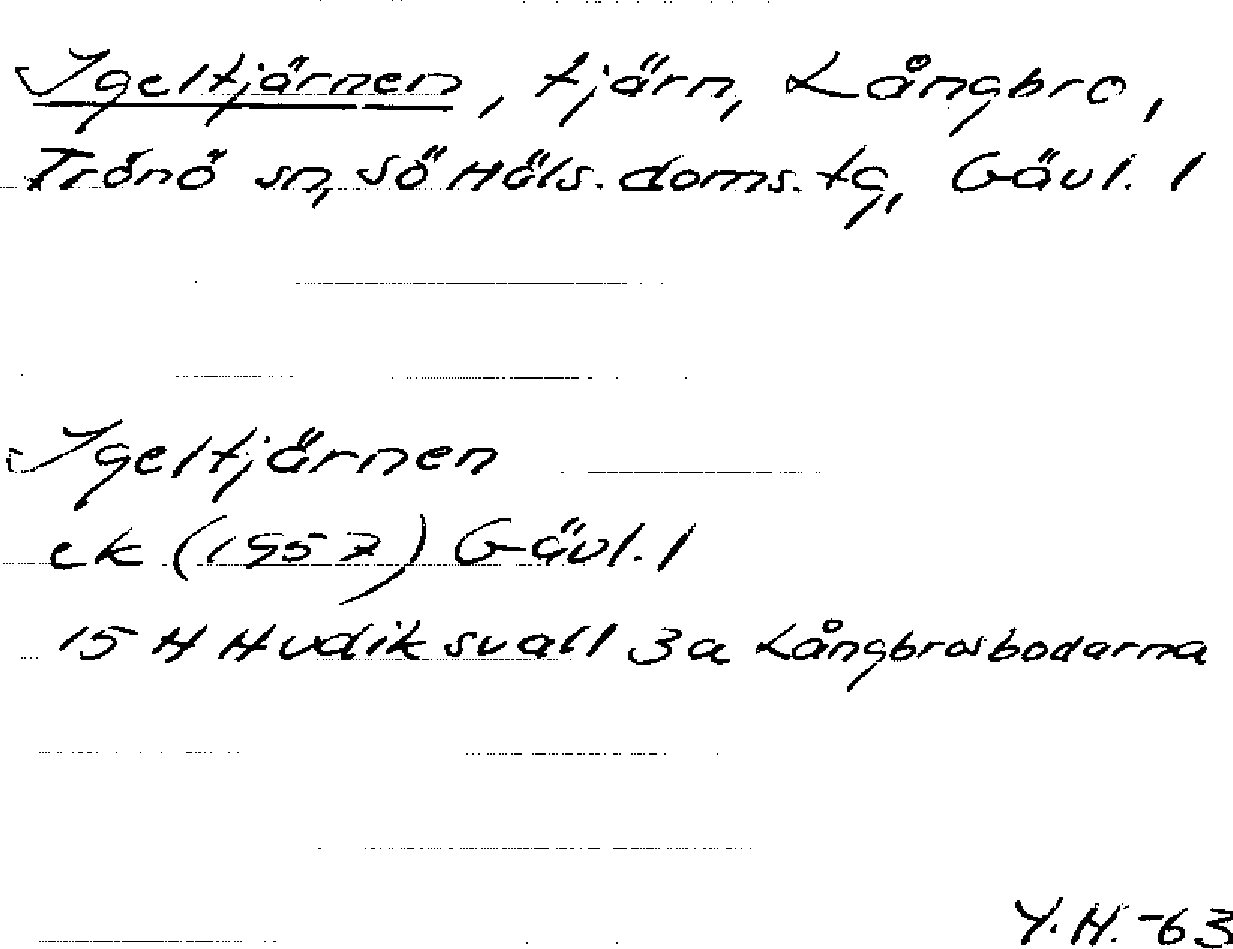 Igeltjärnen, tjärn, Långbro,
Trönö sn, Sö Häls. doms. tg, Gävl. l
Igeltjärnen
ek (1957) Gävl. l
15 H Hudiksvall 3a Långbrosbodarna
Y.H. -63